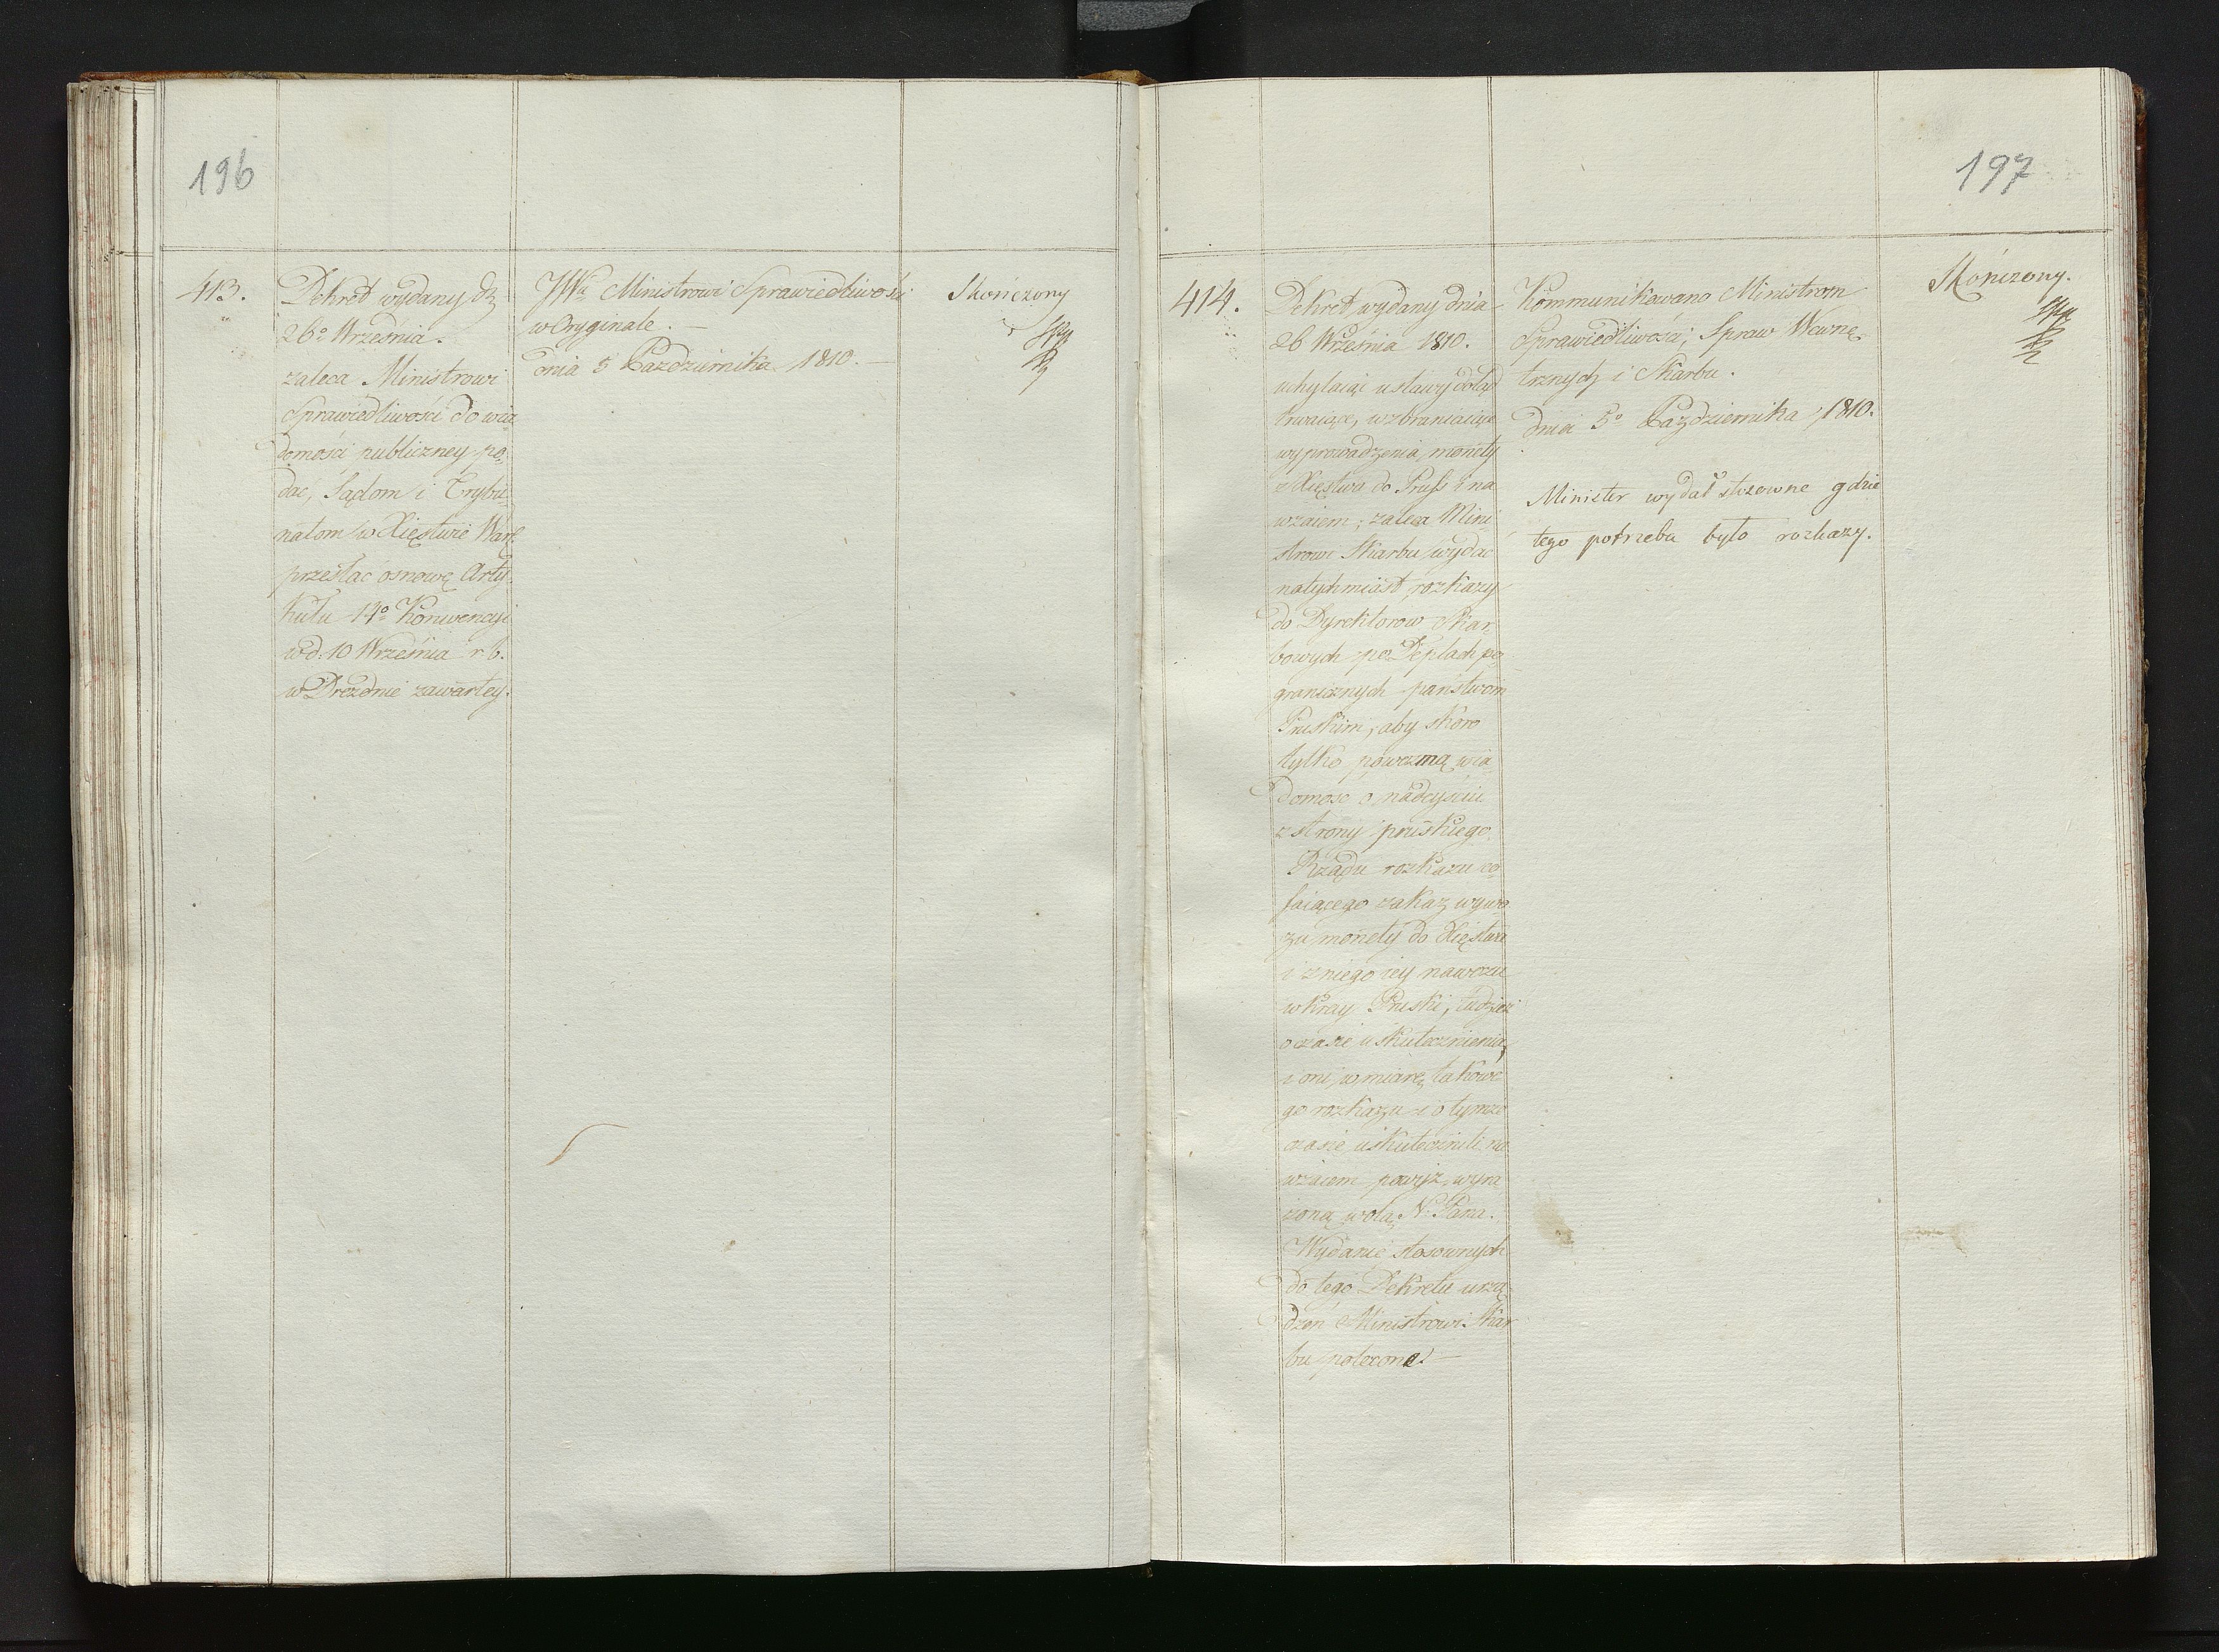 196
413.
Dekret wydany d:
26º Września.
zaleca Ministrowi
Sprawiedliwości do wia
domości publiczney po¬
dać, Sądom i Trybu
nałom w Xięstwie Warl
przesłać osnowę Arty¬
kułu 14º Konwencyi
w d: 10 Września r. b.
w Dreznie zawartey.
JWu Ministrowi Sprawiedliwości
w Oryginale. —
dnia 5 Pazdziernika 1810. —
Skończony
197
414.
Dekret wydany dnia
26 Września 1810.
uchylaiąc ustawy dotąd
trwaiące, wzbraniaiące
wyprowadzenia monety
z Xięstwa do Pruss i na
wzaiem; zaleca Mini
strowi Skarbu wydać
natychmiast rozkazy
do Dyrektorow Skar¬
bowych po Deptach po¬
granicznych państwom
Pruskim, aby skoro
tylko powezmą wia
domość o nadeyściu
z strony pruskiego
Rządu rozkazu co¬
faiącego zakaz wywo
zu monety do Xięstwa
i z niego iey nawozu
w Kray Pruski, tudzież
o czasie uskutecznienia,
i oni w miarę takowe
go rozkazu i o tymze
czasie uskutecznili na
wzaiem powyż wyra
żoną wolą N. Pana.
Wydanie stosownych
do tego Dekretu urzą
dzeń Ministrowi Skar
bu polecone. —
Kommunikowano Ministrom
Sprawiedliwości, Spraw Wewnę¬
trznych i Skarbu.
dnia 5º Października 1810.
Minister wydał stosowne gdzie
tego potrzeba było rozkazy.
Skończony.